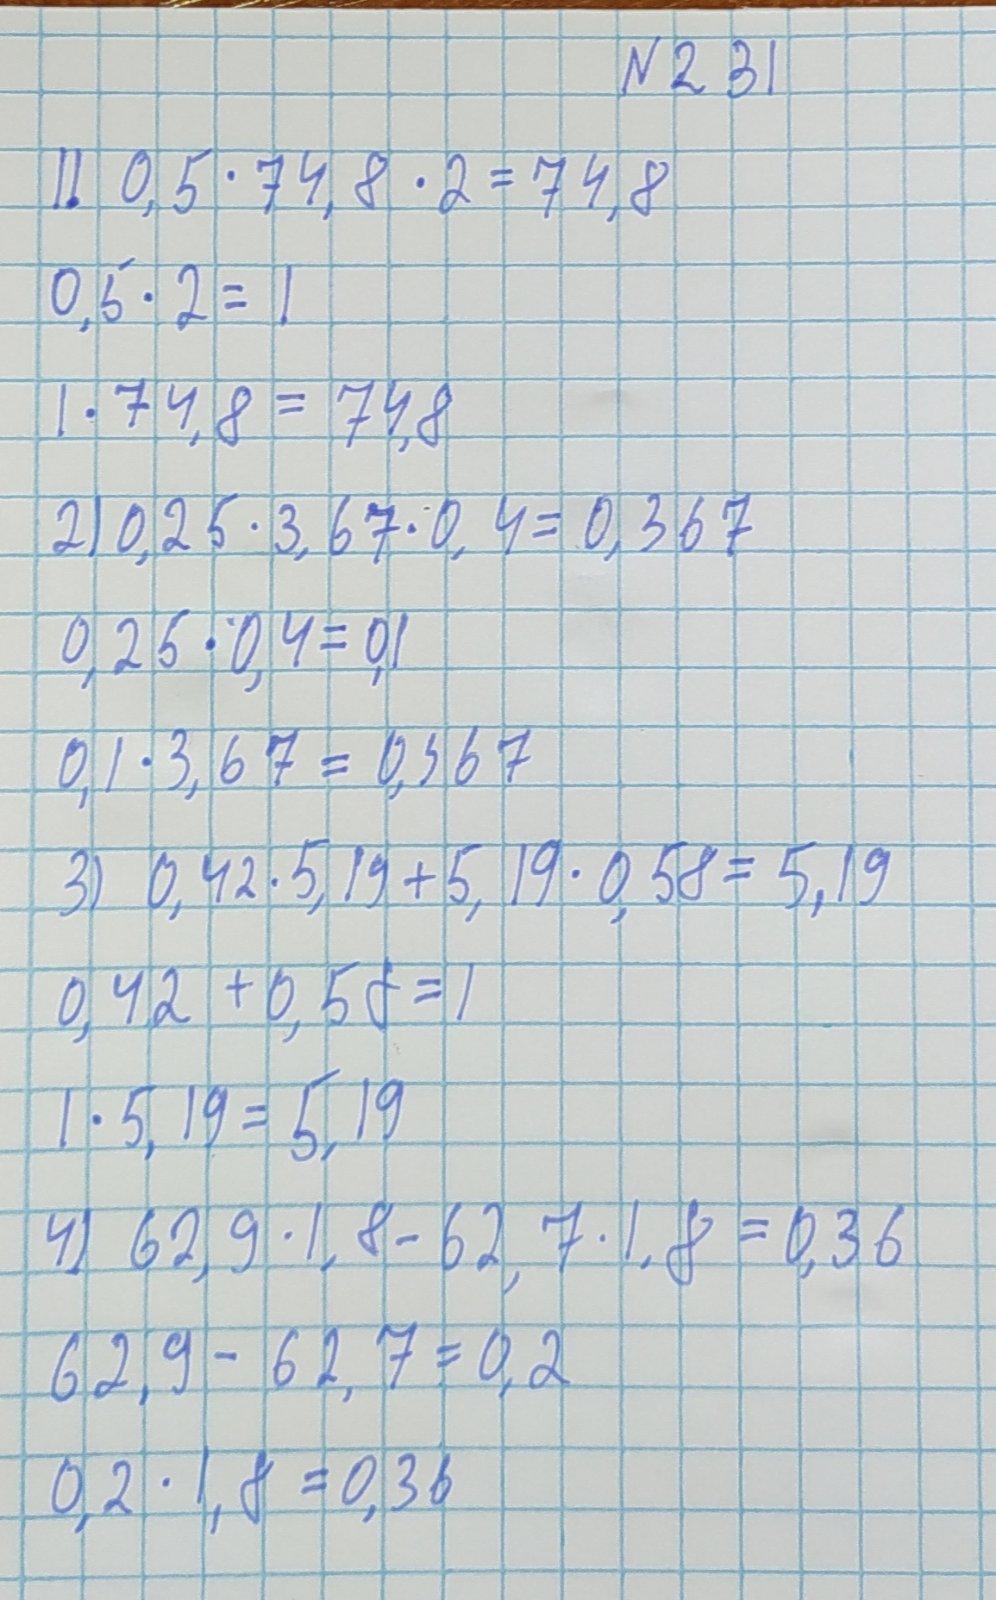 N 231
1) 0,5·74,8·2=74,8
0,5·2=1
1·74,8=74,8
2) 0,25·3,67·0,4=0,367
0,25·0,4=0,1
0,1·3,67=0,367
3) 0,42·5,19+5,19·0,58=5,19
0,42+0,58=1
1·5,19=5,19
4) 62,9·1,8-62,7·1,8=0,36
62,9-62,7=0,2
0,2·1,8=0,36